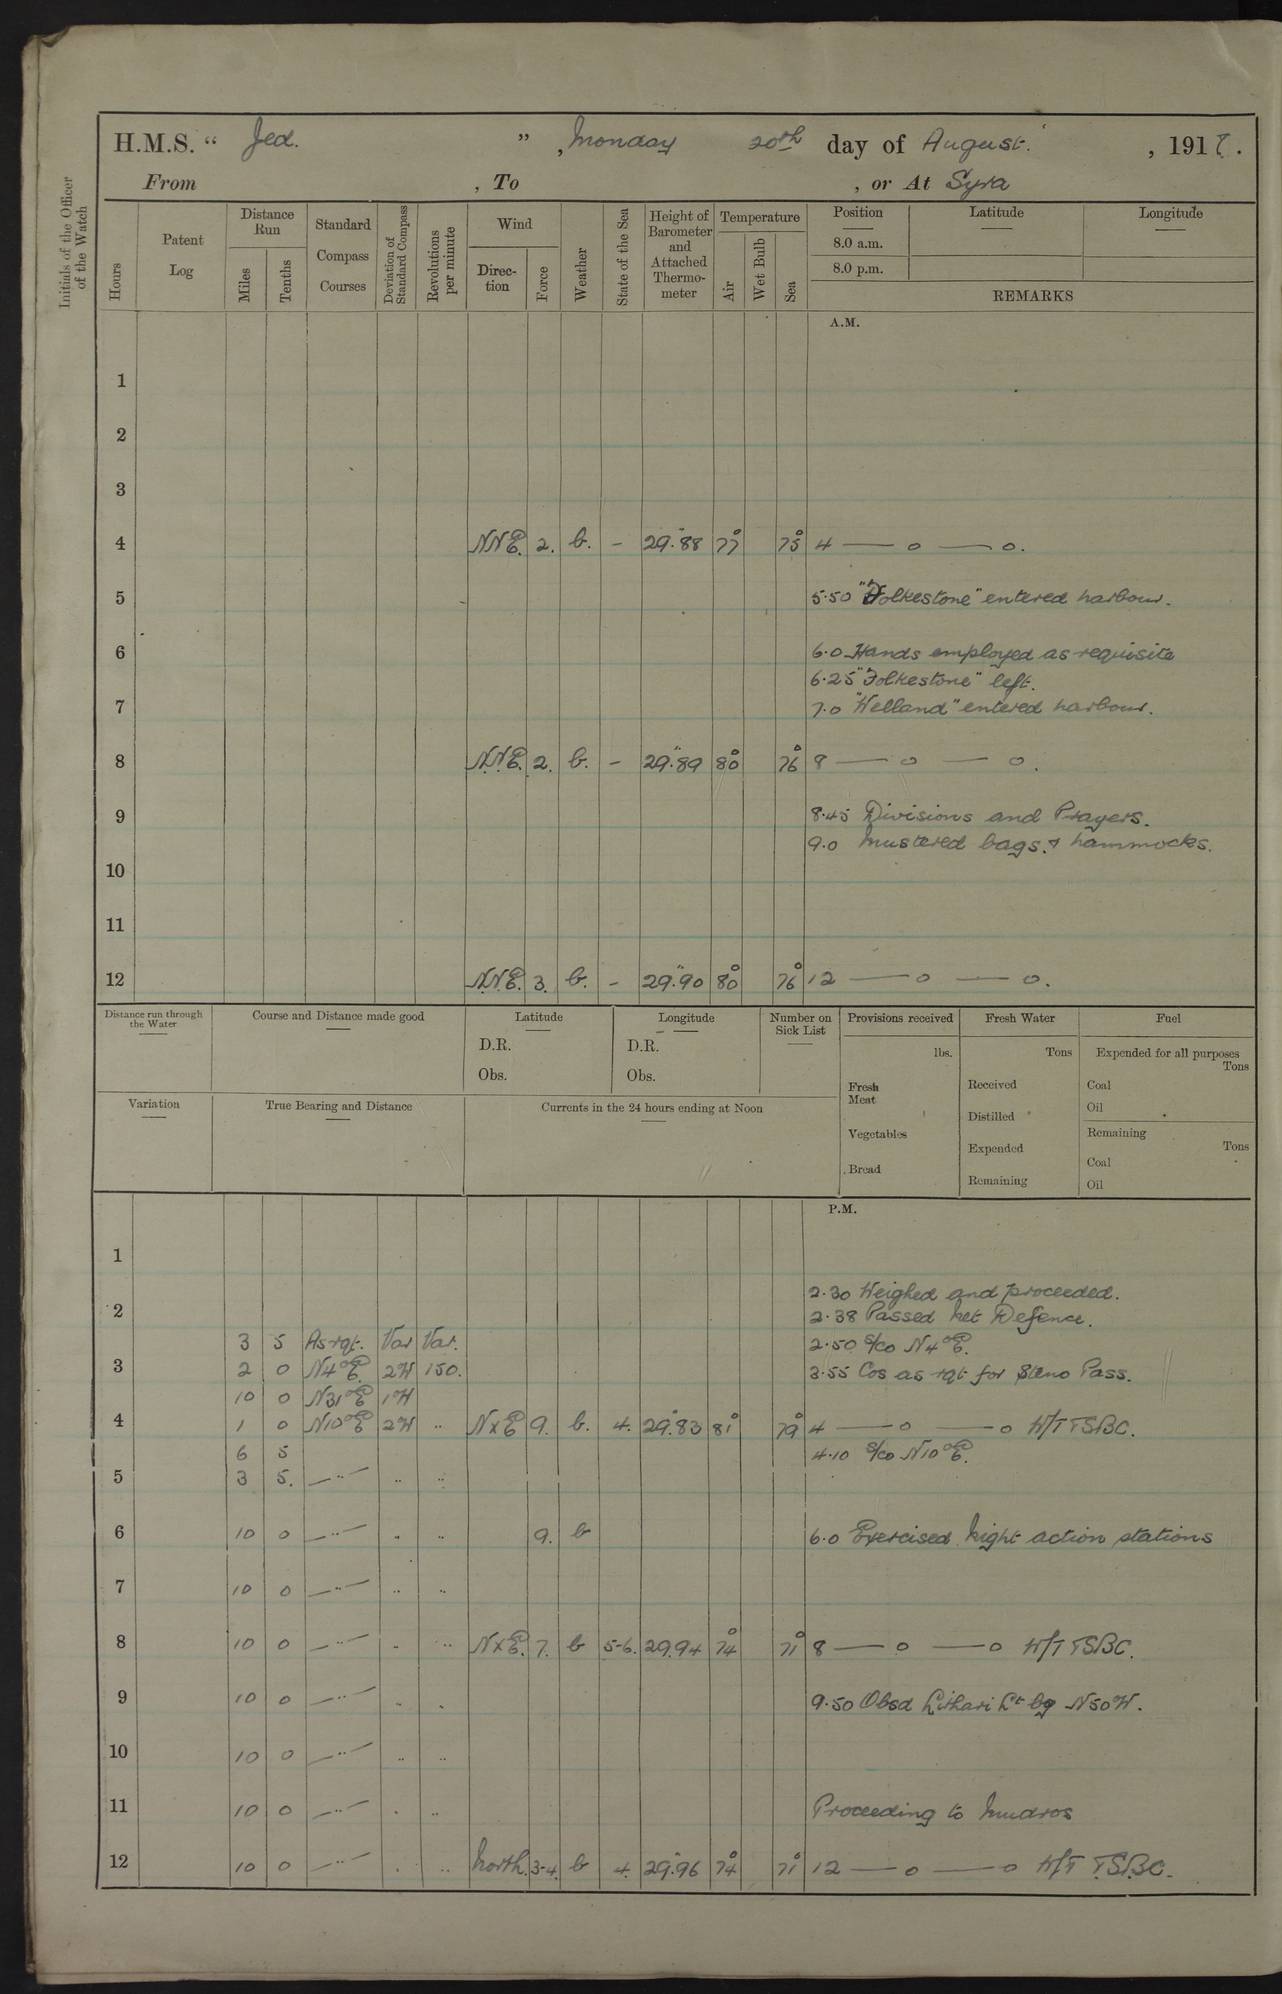 H.M.S. “ Jed. ” , Monday 20th day of August. , 1917.
From , To , or At Syra
Initials of the Officer of the Watch
Hours
Patent Log
Distance Run
Miles
Tenths
Standard Compass Courses
Deviation of Standard Compass
Revolutions per minute
Wind
Direction
Force
Weather
State of the Sea
Height of Barometer and Attached Thermometer
Temperature
Air
Wet Bulb
Sea
Position Latitude Longitude
8.0 a.m.
8.0 p.m.
REMARKS
A.M.
1
2
3
4 NNE. 2. b. - 29.88 77° 75° 4 — o — o.
5 5.50 "Folkestone" entered harbour.
6 6.0 Hands employed as requisite
6.25 "Folkestone" left.
7 7.0 "Welland" entered harbour.
8 N.N.E. 2. b. - 29.89 80° 76° 8 — o — o.
9 8.45 Divisions and Prayers.
9.0 Mustered bags & hammocks.
10
11
12 N.N.E. 3. b. - 29.90 80° 76° 12 — o — o.
Distance run through the Water
Course and Distance made good
Latitude
D.R.
Obs.
Longitude
D.R.
Obs.
Number on Sick List
Provisions received
lbs.
Fresh Meat
Vegetables
Bread
Fresh Water
Tons
Received
Distilled
Expended
Remaining
Fuel
Expended for all purposes
Tons
Coal
Oil
Remaining
Tons
Coal
Oil
Variation
True Bearing and Distance
Currents in the 24 hours ending at Noon
P.M.
1
2.30 Weighed and proceeded.
2 2.38 Passed Net Defence.
3 5 As rqt. Var Var. 2.50 S/co N4°E.
3 2 0 N4°E. 2W 150. 3.55 Cos as rqt for Steno Pass.
10 0 N31°E 1°W
4 1 0 N10°E 2W " NxE 9. b. 4. 29.83 81° 79° 4 — o — o W/T TSBC.
6 5 4.10 S/co N10°E.
5 3 5. —"— " "
6 10 0 —"— " " 9. b 6.0 Exercised Night action stations
7 10 0 —"— " "
8 10 0 —"— " " NxE. 7. b 5-6. 29.94 74° 71° 8 — o — o W/T TSBC.
9 10 0 —"— " " 9.50 Obsd Lithari Lt bg N50W.
10 10 0 —"— " "
11 10 0 —"— " " Proceeding to Mudros
12 10 0 —"— " " North. 3-4. b 4. 29.96 74° 71° 12 — o — o W/T T.S.B.C.